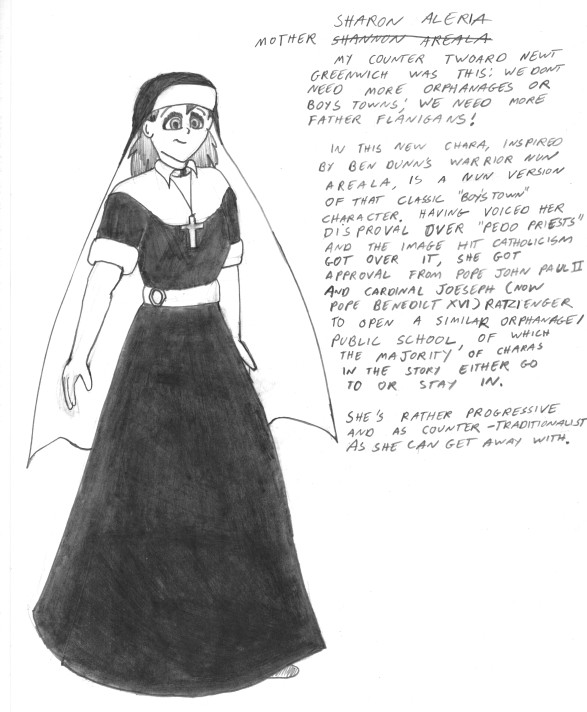 SHARON ALERIA
MOTHER SHANNON AREALA
MY COUNTER TWOARD NEWT
GREENWICH WAS THIS: WE DONT
NEED MORE ORPHANAGES OR
BOYS TOWNS; WE NEED MORE
FATHER FLANIGANS!
IN THIS NEW CHARA, INSPIRED
BY BEN DUNN'S WARRIOR NUN
AREALA, IS A NUN VERSION
OF THAT CLASSIC "BOY'S TOWN"
CHARACTER. HAVING VOICED HER
DI'SPROVAL OVER "PEDO PRIESTS"
AND THE IMAGE HIT CATHOLICISM
GOT OVER IT, SHE GOT
APPROVAL FROM POPE JOHN PAUL II
AND CARDINAL JOESEPH (NOW
POPE BENEDICT XVI) RATZIENGER
TO OPEN A SIMILAR ORPHANAGE/
PUBLIC SCHOOL, OF WHICH
THE MAJORITY OF CHARAS
IN THE STORY EITHER GO
TO OR STAY IN.
SHE'S RATHER PROGRESSIVE
AND AS COUNTER-TRADITIONALIST
AS SHE CAN GET AWAY WITH.